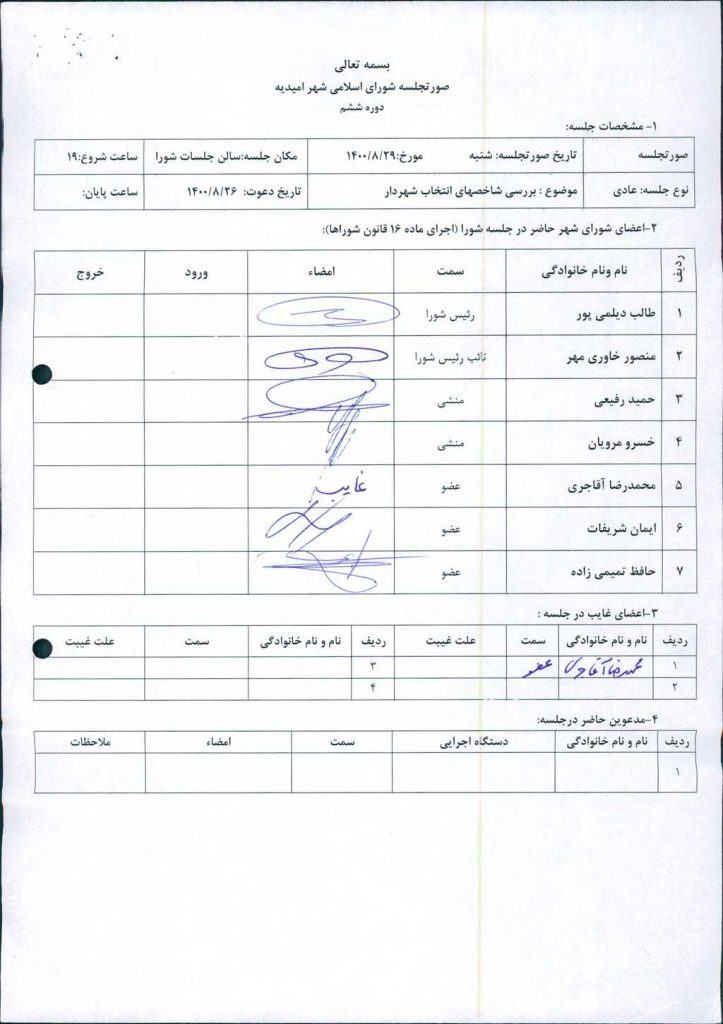 بسمه تعالی
صورتجلسه شورای اسلامی شهر امیدیه
دوره ششم
۱- مشخصات جلسه:
صورتجلسه تاریخ صورتجلسه: شنبه مورخ:۱۴۰۰/۸/۲۹ مکان جلسه:سالن جلسات شورا ساعت شروع:۱۹
نوع جلسه: عادی موضوع : بررسی شاخصهای انتخاب شهردار تاریخ دعوت: ۱۴۰۰/۸/۲۶ ساعت پایان:
۲-اعضای شورای شهر حاضر در جلسه شورا (اجرای ماده ۱۶ قانون شوراها):
ردیف نام ونام خانوادگی سمت امضاء ورود خروج
۱ طالب دیلمی پور رئیس شورا
۲ منصور خاوری مهر نائب رئیس شورا
۳ حمید رفیعی منشی
۴ خسرو مرویان منشی
۵ محمدرضا آقاجری عضو غایب
۶ ایمان شریفات عضو
۷ حافظ تمیمی زاده عضو
۳-اعضای غایب در جلسه :
ردیف نام و نام خانوادگی سمت علت غیبت ردیف نام و نام خانوادگی سمت علت غیبت
۱ محمدرضا آقاجری عضو ۳
۲ ۴
۴-مدعوین حاضر درجلسه:
ردیف نام و نام خانوادگی دستگاه اجرایی سمت امضاء ملاحظات
۱